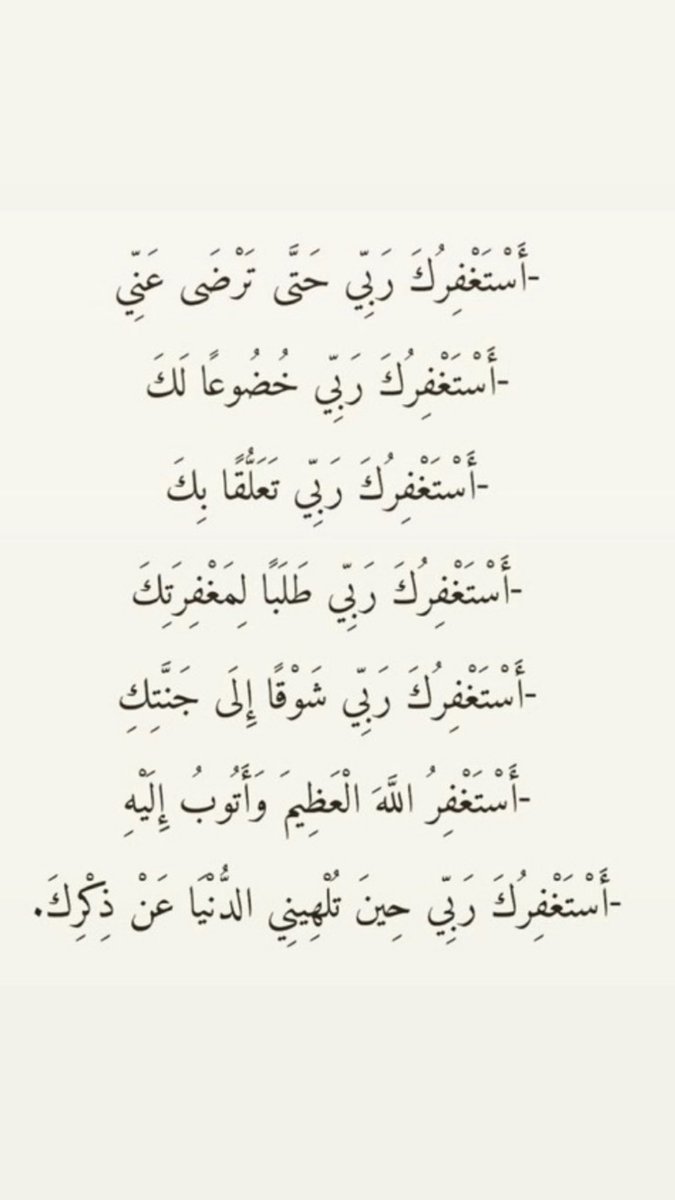 -أَسْتَغْفِرُكَ رَبِّي حَتَّى تَرْضَى عَنِّي
-أَسْتَغْفِرُكَ رَبِّي خُضُوعًا لَكَ
-أَسْتَغْفِرُكَ رَبِّي تَعَلُّقًا بِكَ
-أَسْتَغْفِرُكَ رَبِّي طَلَبًا لِمَغْفِرَتِكَ
-أَسْتَغْفِرُكَ رَبِّي شَوْقًا إِلَى جَنَّتِكِ
-أَسْتَغْفِرُ اللَّهَ الْعَظِيمَ وَأَتُوبُ إِلَيْهِ
-أَسْتَغْفِرُكَ رَبِّي حِينَ تُلْهِينِي الدُّنْيَا عَنْ ذِكْرِكَ.